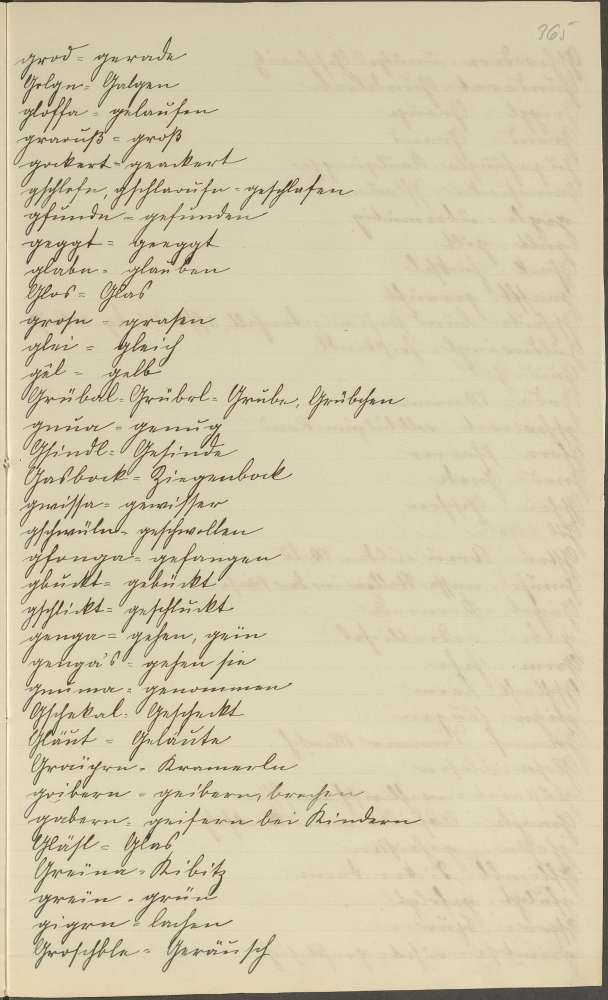 365
grod = gerade
Golgn = Galgen
gloffa = gelaufen
graouß = groß
gockert = geackert
gschlofn, gschlaoufn = geschlafen
gfundn = gefunden
geggt = geeggt
glabn = glauben
Glos = Glas
grosn = grasen
glei = gleich
gêl = gelb
Grübal = Grübrl = Grube, Grübchen
gnua = genug
Gsindl = Gesinde
Gasbock = Ziegenbock
gwissa = gewisser
gschwüln = geschwollen
gfonga = gefangen
gbuckt = gebückt
gschlickt = geschluckt
genga = gehen, geïn
genga's = gehen sie
gnuma = genommen
Gschekal = Gescheckt
Gläut = Geläute
Kramerln
goibern = geibern, brechen
gabern = geifern bei Kindern
Gläsl = Glas
Greïna = Kibitz
greïn = grün
gigrn = lachen
Groschbln = Geräusch